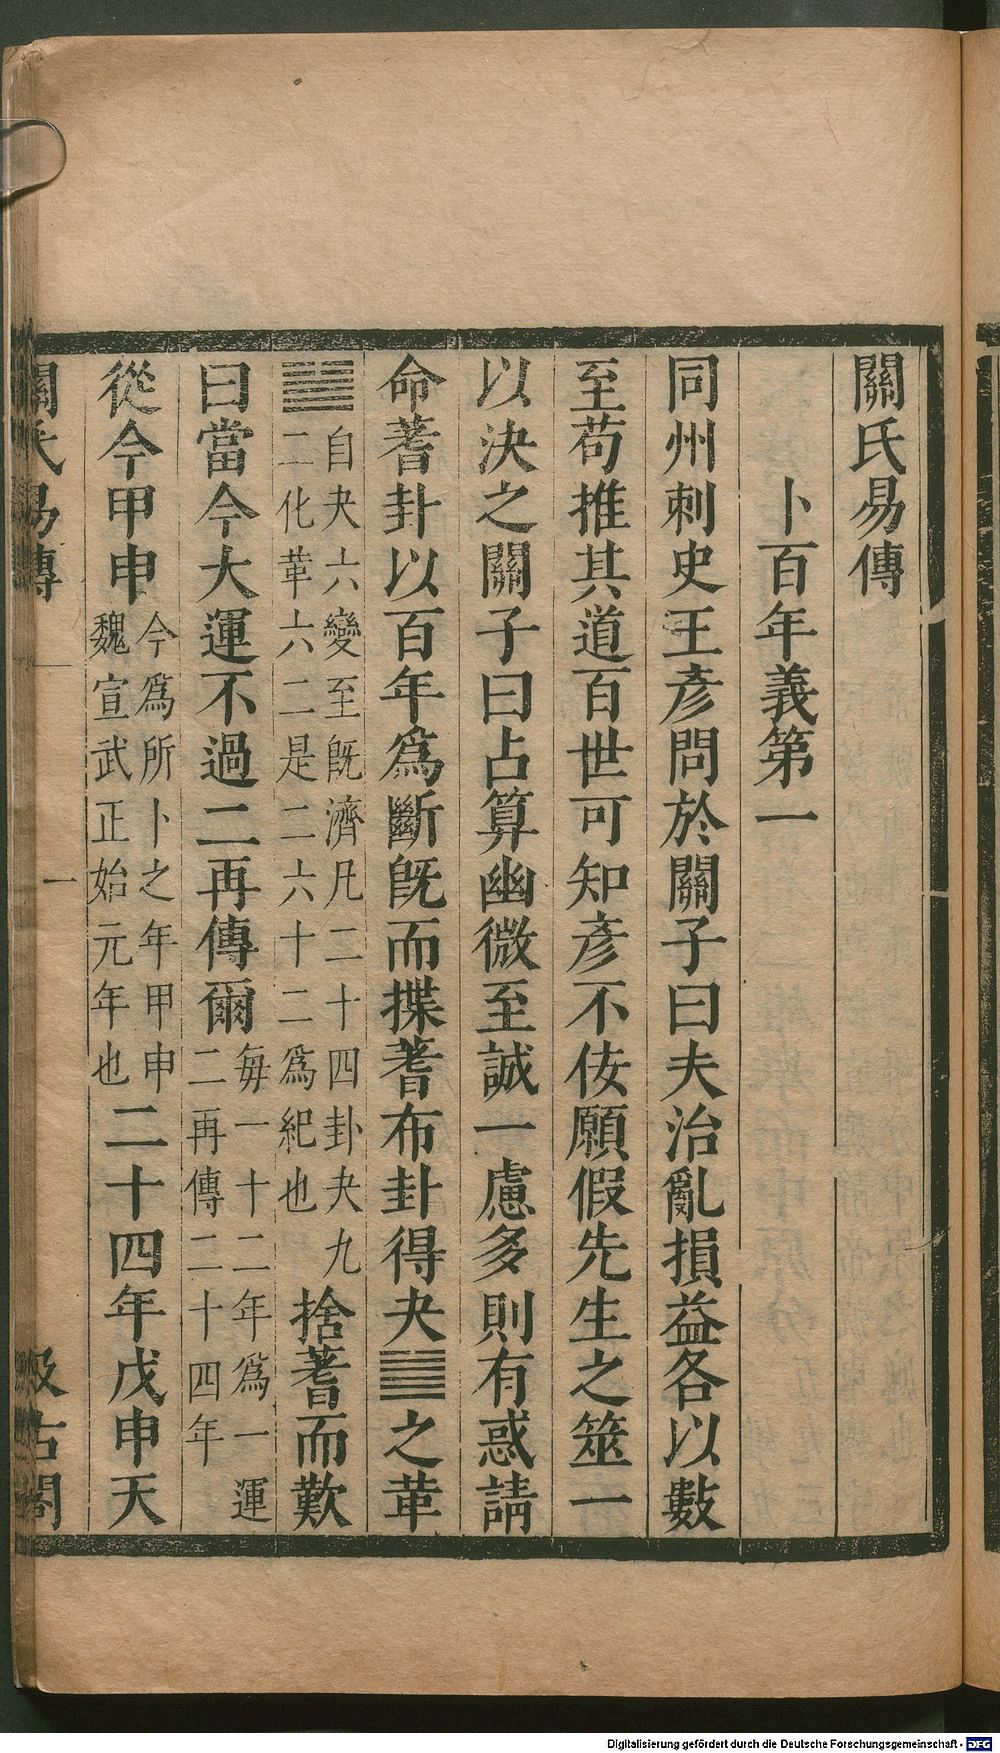 關氏易傳
卜百年義第一
同州刺史王彥問於關子曰夫治亂損益各以數
至苟推其道百世可知彥不佞願假先生之筮一
以決之關子曰占算幽微至誠一慮多則有惑請
命蓍卦以百年爲斷旣而揲蓍布卦得夬䷪之革
䷰自夬六變至旣濟凡二十四卦夬九
二化革六二是二六十二爲紀也
捨蓍而歎
曰當今大運不過二再傳爾
每一十二年爲一運
二再傳二十四年
從今甲申
今爲所卜之年甲申
魏宣武正始元年也
二十四年戊申天
關氏易傳
一
汲古閣
Digitalisierung gefördert durch die Deutsche Forschungsgemeinschaft - DFG